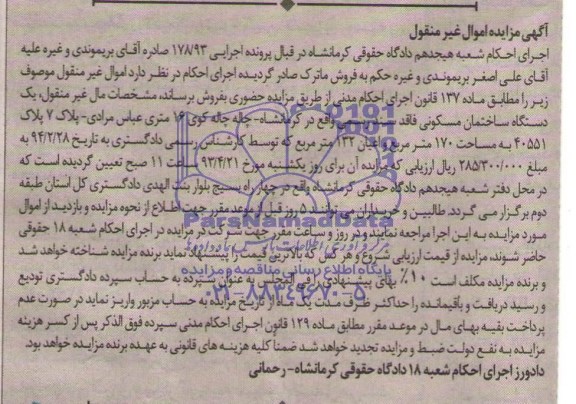 آگهی مزایده اموال غیر منقول
اجرای احکام شعبه هیجدهم دادگاه حقوقی کرمانشاه در قبال پرونده اجرایی ۱۷۸/۹۳ صادره آقای بریموندی و غیره علیه
آقای علی اصغر بریموندی و غیره حکم به فروش ماترک صادر گردیده اجرای احکام در نظر دارد اموال غیر منقول موصوف
زیر را مطابق ماده ۱۳۷ قانون اجرای احکام مدنی از طریق مزایده حضوری بفروش برساند، مشخصات مال غیر منقول، یک
دستگاه ساختمان مسکونی فاقد سند رسمی واقع در کرمانشاه-چاله چاله کوی ۱۶ متری عباس مرادی- پلاک ۷ پلاک
۴۰۵۵۱ به مساحت ۱۷۰ متر مربع و اعیان ۱۳۲ متر مربع که توسط کارشناس رسمی دادگستری به تاریخ ۹۴/۲/۲۸ به
مبلغ ۲۸۵/۳۰۰/۰۰۰ ریال ارزیابی که مزایده آن برای روز یکشنبه مورخ ۹۳/۴/۲۱ ساعت ۱۱ صبح تعیین گردیده است که
در محل دفتر شعبه هیجدهم دادگاه حقوقی کرمانشاه واقع در چهار راه بسیج بلوار بنت الهدی دادگستری کل استان طبقه
دوم برگزار می گردد. طالبین و خریداران می توانند ۵ روز قبل از موعد مقرر جهت اطلاع از نحوه مزایده و بازدید از اموال
مورد مزایده به این اجرا مراجعه نمایند و در روز و ساعت مقرر جهت شرکت در مزایده در اجرای احکام شعبه ۱۸ حقوقی
حاضر شوند، مزایده از قیمت ارزیابی شروع و هر کس که بالاترین قیمت را پیشنهاد نماید برنده مزایده شناخته خواهد شد
و برنده مزایده مکلف است ۱۰٪ بهای پیشنهادی را فی المجلس به عنوان سپرده به حساب سپرده دادگستری تودیع
و رسید دریافت و باقیمانده را حداکثر ظرف مدت یک ماه از تاریخ مزایده به حساب مزبور واریز نماید در صورت عدم
پرداخت بقیه بهای مال در موعد مقرر مطابق ماده ۱۲۹ قانون اجرای احکام مدنی سپرده فوق الذکر پس از کسر هزینه
مزایده به نفع دولت ضبط و مزایده تجدید خواهد شد ضمنا کلیه هزینه های قانونی به عهده برنده مزایده خواهد بود.
دادورز اجرای احکام شعبه ۱۸ دادگاه حقوقی کرمانشاه- رحمانی
ParsNamadData
پایگاه اطلاع رسانی مناقصه و مزایده
۰۲۱-۸۸۳۴۹۶۷۰-۵